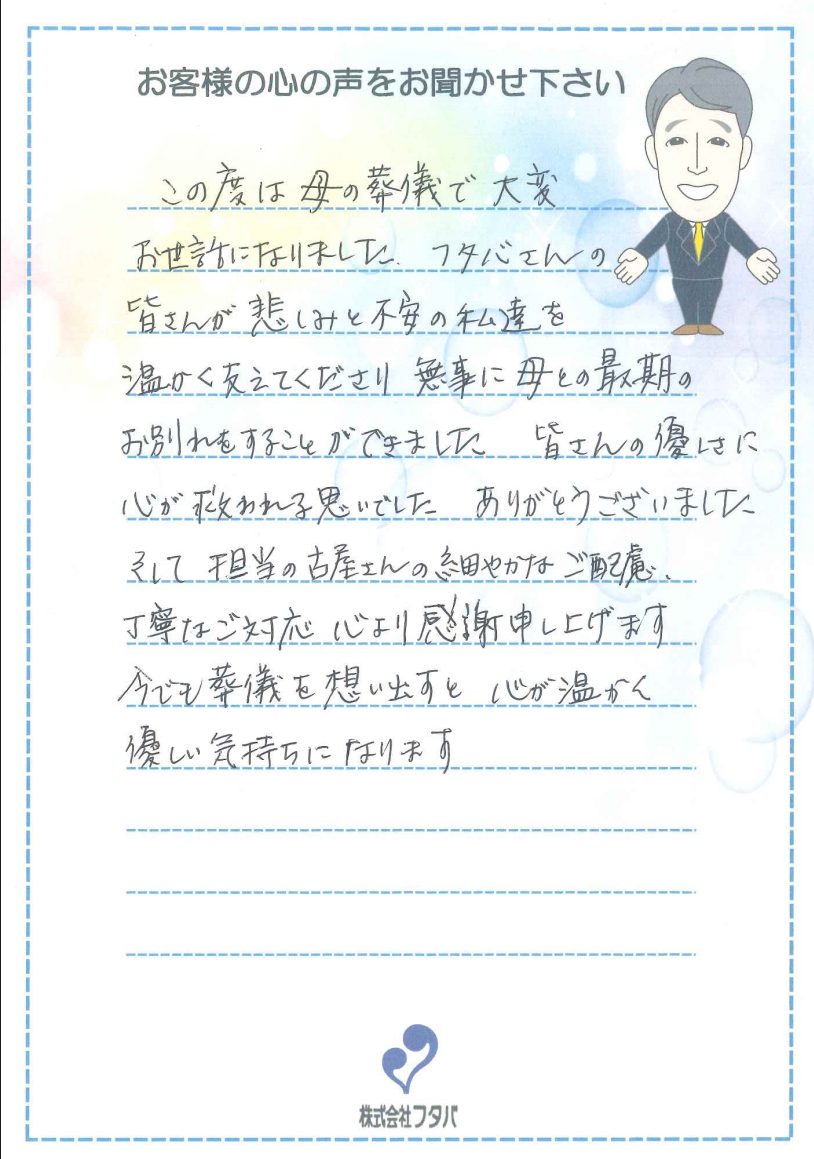 お客様の心の声をお聞かせ下さい
この度は母の葬儀で 大変
お世話になりました. フタバさんの
皆さんが 悲しみと不安の私達を
温かく支えてくださり 無事に母との最期の
お別れをすることができました 皆さんの優しさに
心が救われる思いでした ありがとうございました
そして 担当の古屋さんの細やかなご配慮、
丁寧なご対応 心より感謝申し上げます
今でも葬儀を想い出すと 心が温かく
優しい気持ちになります
株式会社フタバ